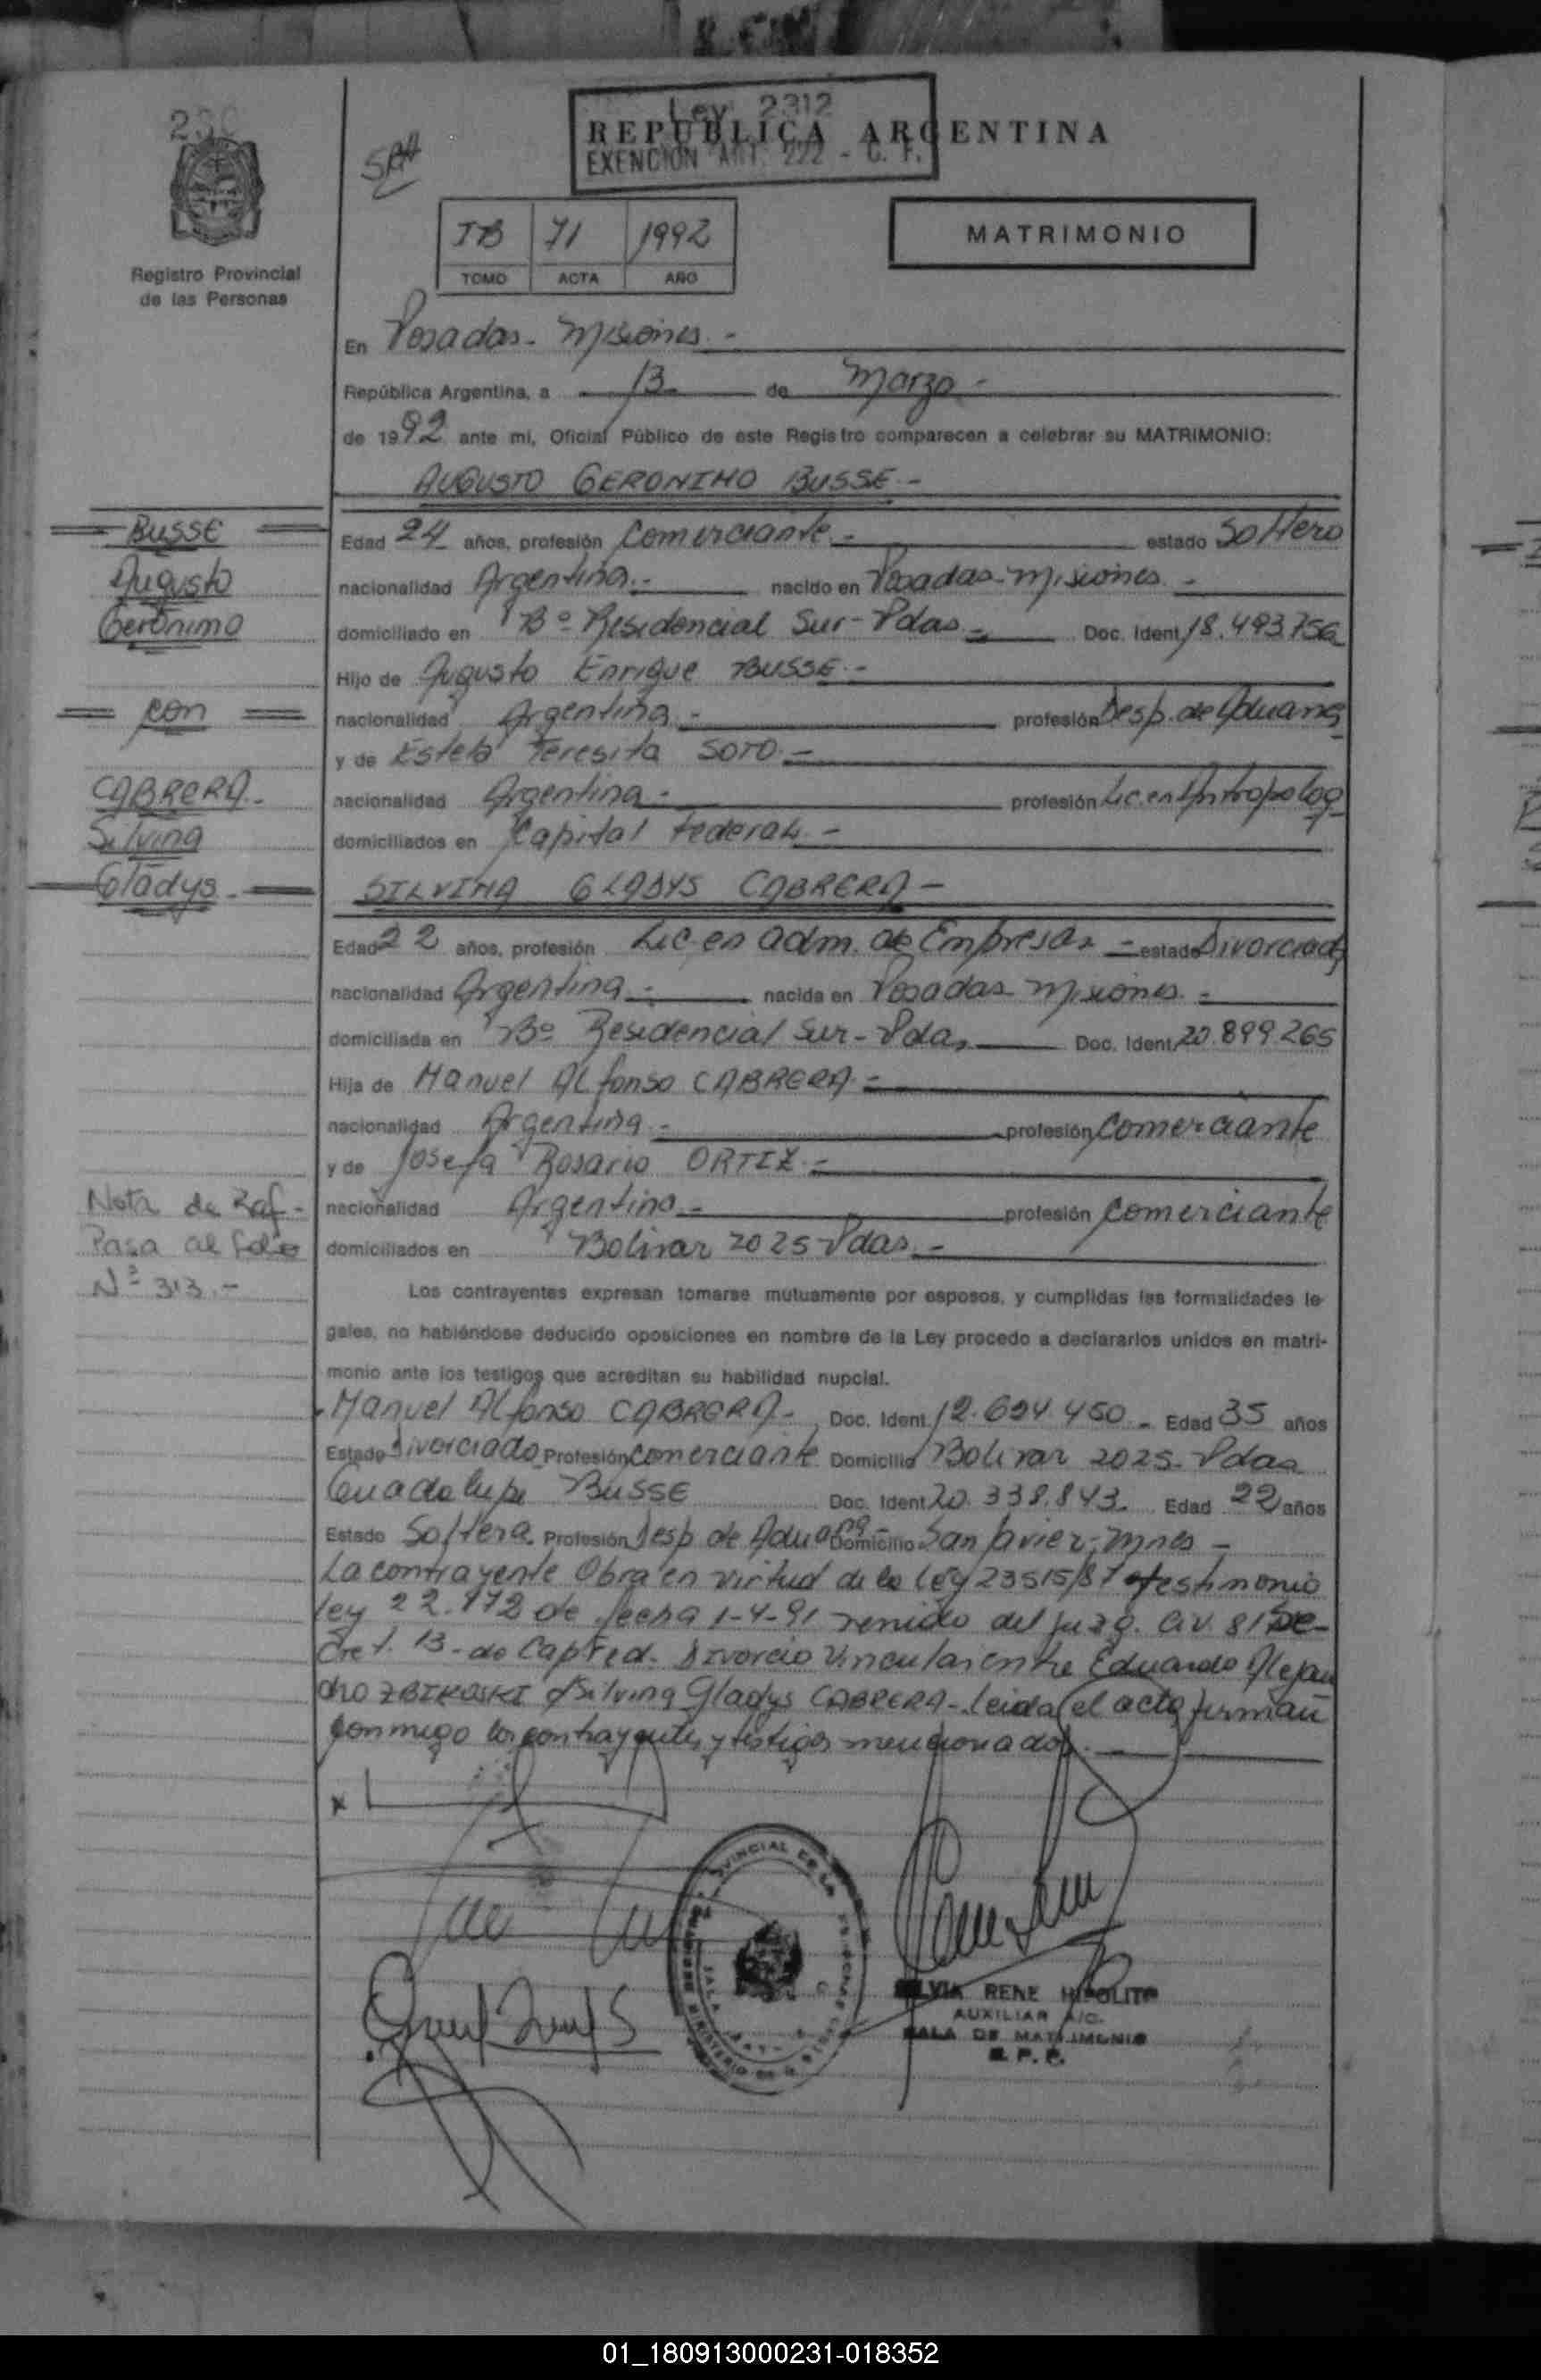 Ley 2312
REPUBLICA ARGENTINA
EXENCION ART. 222 - C. F.
TB 71 1992
TOMO ACTA AÑO
MATRIMONIO
Registro Provincial
de las Personas
En Posadas - Misiones.-
República Argentina, a 13 de Marzo.-
de 1992 ante mi, Oficial Público de este Registro comparecen a celebrar su MATRIMONIO:
AUGUSTO GERONIMO BUSSE.-
BUSSE
Augusto
Gerónimo
con
CABRERA.-
Silvina
Gladys.-
Edad 24 años, profesión Comerciante.- estado Soltero
nacionalidad Argentina.- nacido en Posadas-Misiones.-
domiciliado en Bº Residencial Sur-Pdas.- Doc. Ident. 18.493.756
Hijo de Augusto Enrique BUSSE.-
nacionalidad Argentina.- profesión Desp. de Aduana
y de Estela Teresita SOTO.-
nacionalidad Argentina.- profesión Lic. en Antropolog
domiciliados en Capital Federal.-
SILVINA GLADYS CABRERA-
Edad 22 años, profesión Lic. en Adm. de Empresas - estado Divorciada
nacionalidad Argentina.- nacida en Posadas-Misiones.-
domiciliada en Bº Residencial Sur-Pdas. Doc. Ident. 20.899.265
Hija de Manuel Alfonso CABRERA.-
nacionalidad Argentina.- profesión Comerciante
y de Josefa Rosario ORTIZ.-
nacionalidad Argentina.- profesión Comerciante
domiciliados en Bolivar 2025 Pdas.-
Nota de Ref-
Pasa al folio
Nº 313.-
Los contrayentes expresan tomarse mútuamente por esposos, y cumplidas las formalidades le-
gales, no habiéndose deducido oposiciones en nombre de la Ley procedo a declararlos unidos en matri-
monio ante los testigos que acreditan su habilidad nupcial.
Manuel Alfonso CABRERA- Doc. Ident. 12.694.450- Edad 35 años
Estado divorciado Profesión comerciante Domicilio Bolivar 2025-Pdas
Guadalupe BUSSE Doc. Ident. 20.338.843- Edad 22 años
Estado Soltera Profesión Desp. de Aduana- Domicilio San Javier; Mnes-
La contrayente Obra en virtud de la Ley 23515/87 testimonio
ley 22.172 de fecha 1-4-91 venido del Juzg. Civ. 81 Se-
cret. 13- de Cap Fed. Divorcio Vincular entre Eduardo Alejan
dro ZBIKOSKI Silvina Gladys CABRERA-Leida el acta firman
conmigo los contrayentes y testigos mencionados.-
SILVIA RENE HIPOLITO
AUXILIAR A/C.
SALA DE MATRIMONIO
R. P. P.
01_180913000231-018352